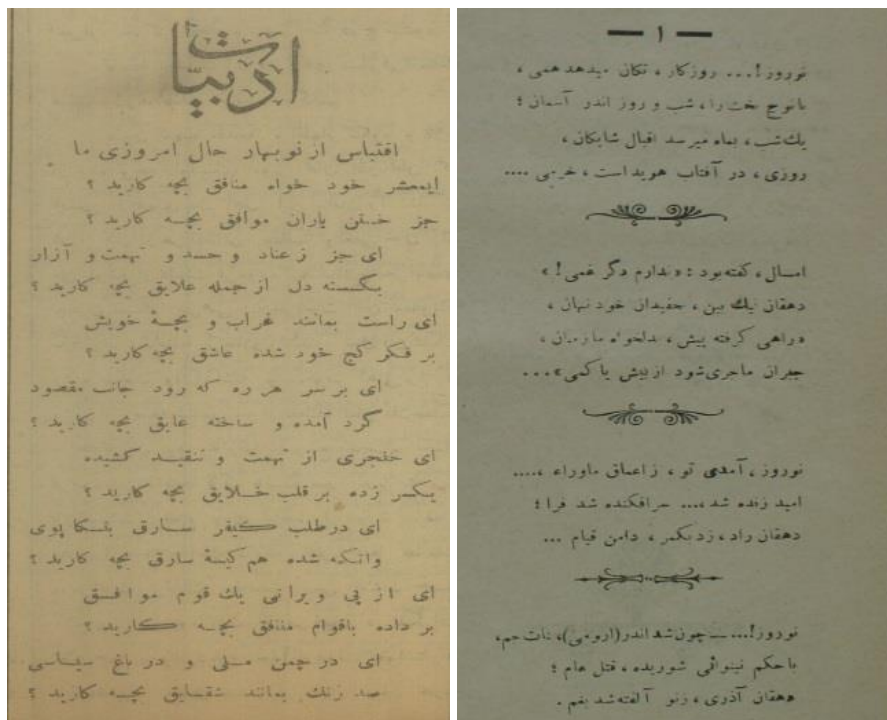 ادبیات
اقتباس از نوبهار حال امروزی ما
ایمعشر خود خواه منافق بچه کارید ؟
جز خستن یاران موافق بچه کارید ؟
ای جز ز عناد و حسد و تهمت و آزار
بگسسته دل از جمله علایق بچه کارید ؟
ای راست بمانند غراب و بچهٔ خویش
بر فکر کج خود شده عاشق بچه کارید ؟
ای بر سر هر ره که رود جانب مقصود
گرد آمده و ساخته عایق بچه کارید ؟
ای خنجری از تهمت و تنقید کشیده
یکسر زده بر قلب خلایق بچه کارید ؟
ای در طلب کیفر سارق بتکاپوی
وانگه شده هم کیسهٔ سارق بچه کارید ؟
ای از پی ویرانی یک قوم موافق
بر داده باقوام منافق بچه کارید ؟
ای در چمن ملی و در باغ سیاسی
صد رنگ بمانند شقایق بچه کارید ؟
— ۱ —
نوروز!... روزکار ، تکان میدهد همی ،
شب و روز اندر آسمان ؛
یکشب ، بماه میرسد اقبال شایکان ،
روزی ، در آفتاب هویداست ، خرمی ....
امسال ، کفته بود : «ندارم دگر غمی! »
دهقان نیک بین ، بحفیدان خود نهان ،
«راهی کرفته پیش ، بدلخواه ما زمان ،
جبران ماجری شود از بیش یا کمی»...
نوروز ، آمدی تو ، ز اعماق ماوراء ،....
امید زنده شد ،... سرافکنده شد فرا ؛
دهقان راد ، زد بکمر ، دامن قیام ...
نوروز!... — چون شد اندر (ارومی)،
با حکم نینوائی شوریده ، قتل عام ؛
دهقان آذری ، ز نو آلفته شد بغم .